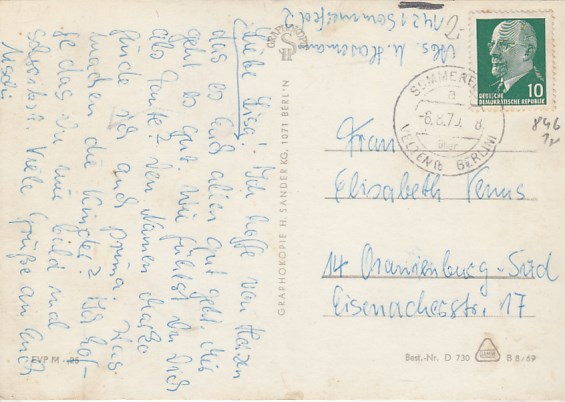 Liebe Lisa! Ich hoffe von Herzen
das es Euch allen gut geht. Mir
geht es gut. Wie fühlst Du Dich
als Tante? Den Namen
finde ich auch prima. Was
machen die Kinder? Ich hof-
fe das Du mir bald mal
schreibst. Viele Grüße an Euch
Uschi
1421 Sommerfeld 2
GRAPHOKOPIE H. SANDER KG, 1071 BERLIN
EVP M -,25
SOMMERFELD
a
-6.8.70.-8
über
VELTEN (BERLIN)
DEUTSCHE
DEMOKRATISCHE REPUBLIK
10
846
Frau
Elisabeth Venus
14 Oranienburg-Süd
Eisenacherstr. 17
Best.-Nr. D 730
B 8/69